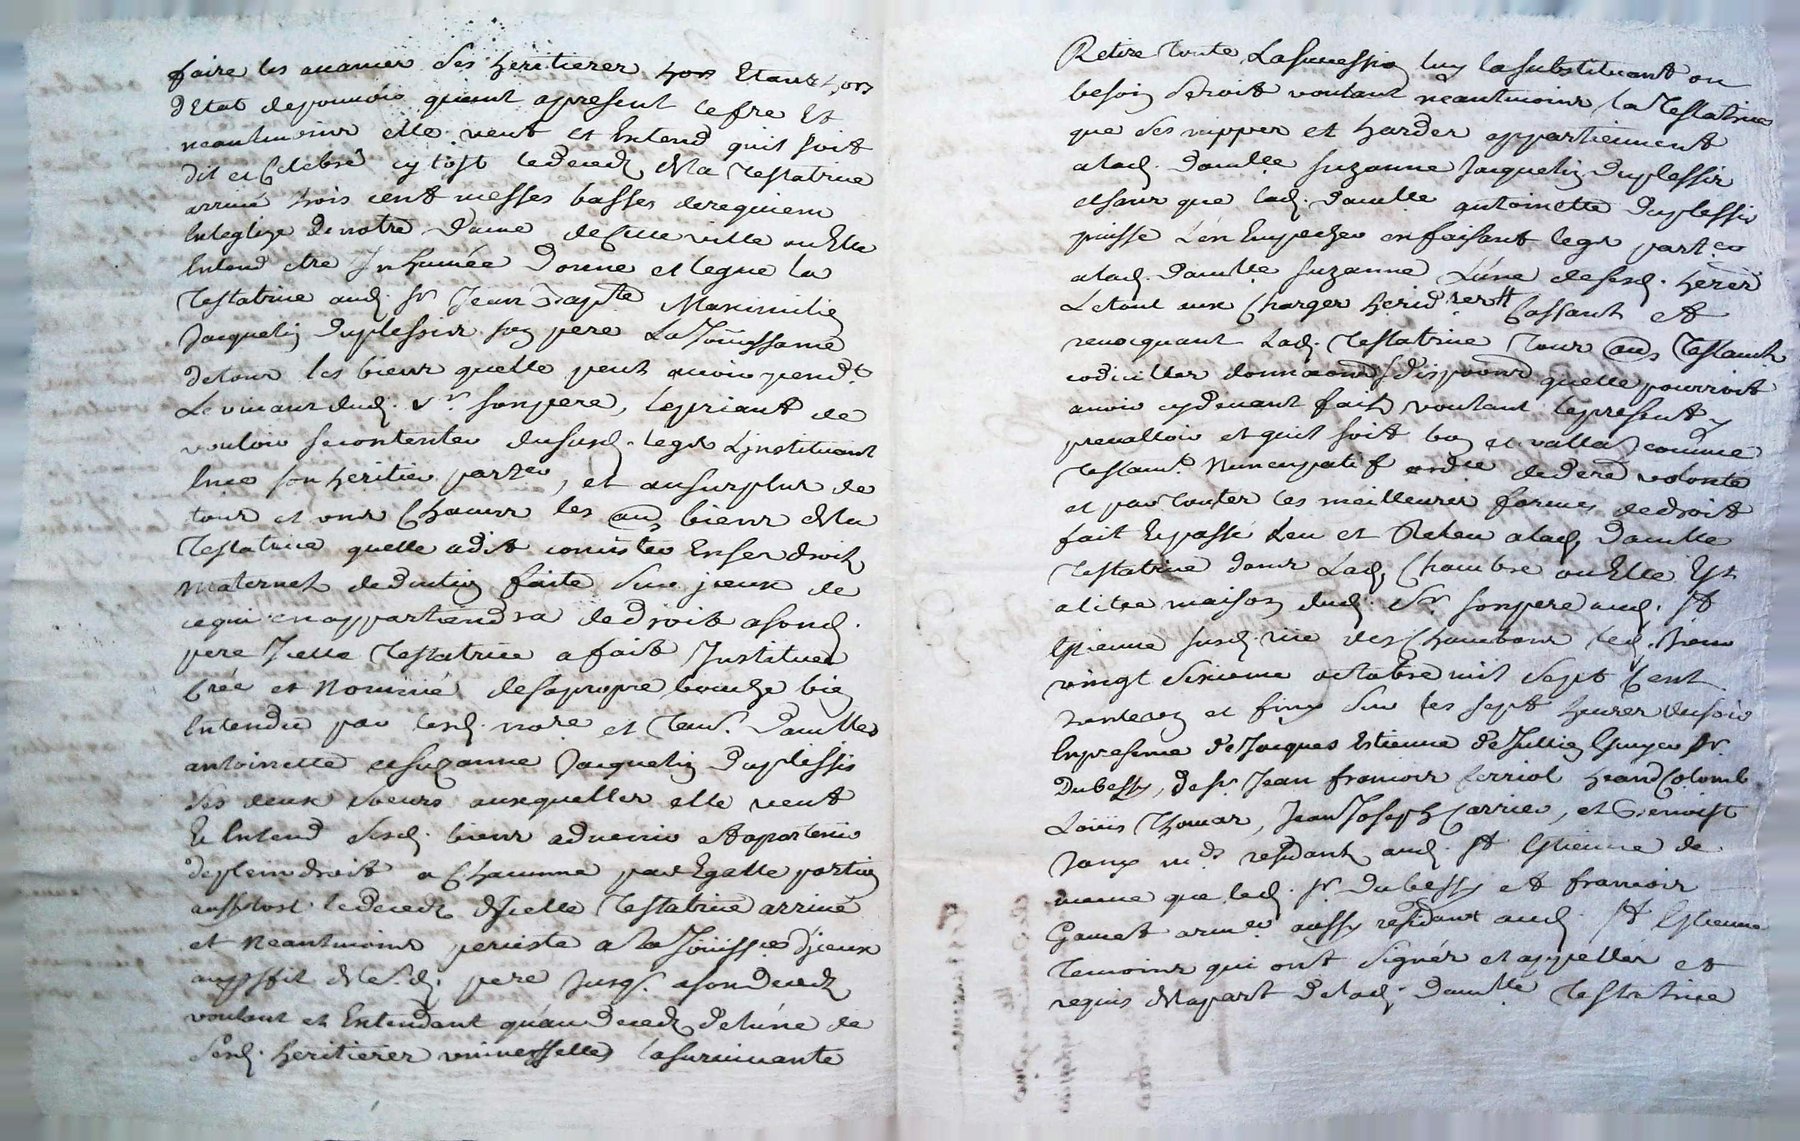 faire les avances ses heritieres hors Etant hors
dEtat depouvoir quant apresent cefre Et
neantmoins elle veut et Entend quil soit
dit et Celebré cy tost ledeced de la testatrice
arrivé trois cent messes basses derequiem
En leglize de notre Dame de Cette ville ou Elle
Entend etre Inhumée Donne et legue la
testatrice aud. Sr Jean Bapte Maximilien
Jacquelin duplessis son pere La Joüissance
detous les biens quelle peut avoir pendt.
Le vivant dud. Sr. son pere, le priant de
vouloir secontenter dususd. legs Linstituant
En ce son heritier parter, et ausurplus de
tous et uns Chacuns les aues biens de la
Testatrice quelle a dit consister En ses droits
Maternels deduction faite sur iceux de
cequi en appartiendra dedroit asond.
pere Icelle Testatrice a fait Institué
Créé et Nommé desapropre bouche bien
Entendu par lesd. nore et tems. Damlles
antoinette et Suzanne Jacquelin Duplessis
ses deux soeurs auxquelles elle veut
Et Entend sesd. biens advenir et apartenir
depleindroit a Chacune par Egalle portion
aussytost ledeced dIcelle Testatrice arrivé
et Neantmoins persiste a la Joüissce dIceux
au proffit de sd. pere Jusq. a son deced
voulant et Entendant qu'au Deced de l'une de
sesd. heritieres universselles la survivante
Retire toute La Succession luy la substituant au
besoin seroit voulant neantmoins la Testatrice
que ses nippes et hardes appartiennent
a lad. Damlle Suzanne Jacquelin Duplessis
et sans que lad. Damlle antoinette Duplessis
puisse L'en Empecher en faisant legs parter
a lad. Damlle Suzanne L'une de sesd. heres
Le tout aux Charges hereditres Cassant et
revocquant Lad. Testatrice tous aues Testamts
codicilles donnaons et disponns quelle pourroit
avoir cydevant faits voulant le present
prevalloir et quil soit bon et vallable comme
Testamt. Nuncupatif ordre de dere volonté
et par toutes les meilleures formes dedroit
fait Et passé Leu et Releu a lad. Damlle
Testatrice dans Lad. Chambre ou Elle Est
alitée maison dud. Sr. son pere aud. St
Estienne susd. rüe des Chambons led. Jour
vingt sixieme octobre mil sept Cent
et sur les sept heures du soir
En presence de Jacques Estienne de Jullien Sr.
Dubessy, de Sr. Jean francois ferriol Jean Colomb
Loüis Thomas, Jean Joseph Carrier, et Benoist
mds residants aud. St Estienne de
meme que led. Sr. Dubessy et francois
Gamet armer aussy residant aud. St Estienne
temoins qui ont signés et appellés et
requis de la part de lad. Damlle Testatrice